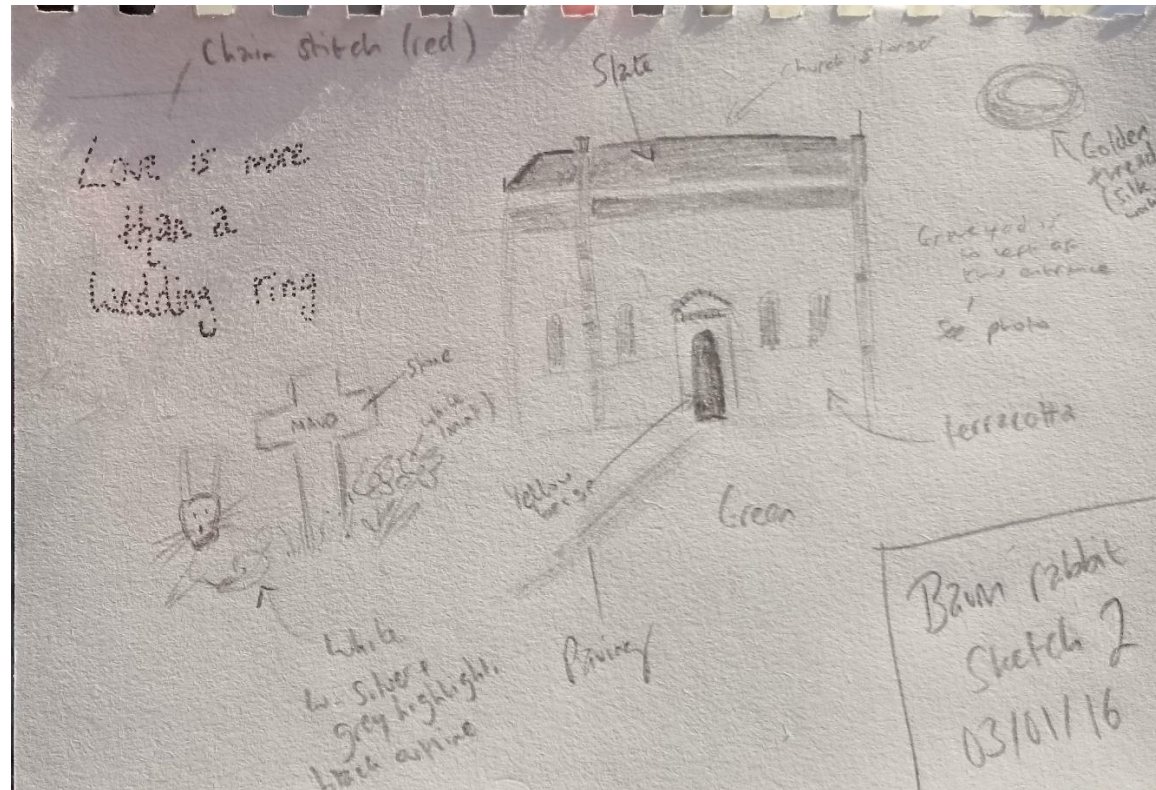 Chain stitch (red)
Love is more
than a
Wedding ring
Slate
church is larger
Golden
thread
(silk
Graveyard is
to left of
entrance
See photo
stone
MAVD
white
(mint)
Yellow
beige
terracotta
Green
White
w. silver +
grey highlights
black outline
Paving
Baum rabbit
Sketch 2
03/01/16